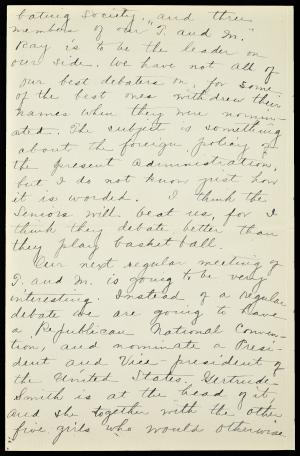 bating Society," and three
members of our T. and M.
Kay is to be the leader on
our side. We have not all of
our best debaters on, for some
of the best ones withdrew their
names when they were nomin-
ated. The subject is something
about the foreign policy of
the present administration,
but I do not know just how
it is worded. I think the
Seniors will beat us, for I
think they debate better than
they play basket ball.
Our next regular meeting of
T. and M. is going to be very
interesting. Instead of a regular
debate we are going to have
a Republican National Conven-
tion, and nominate a Presi-
dent and Vice-president of
the United States. Gertrude
Smith is at the head of it,
and she together with the other
five girls who would otherwise